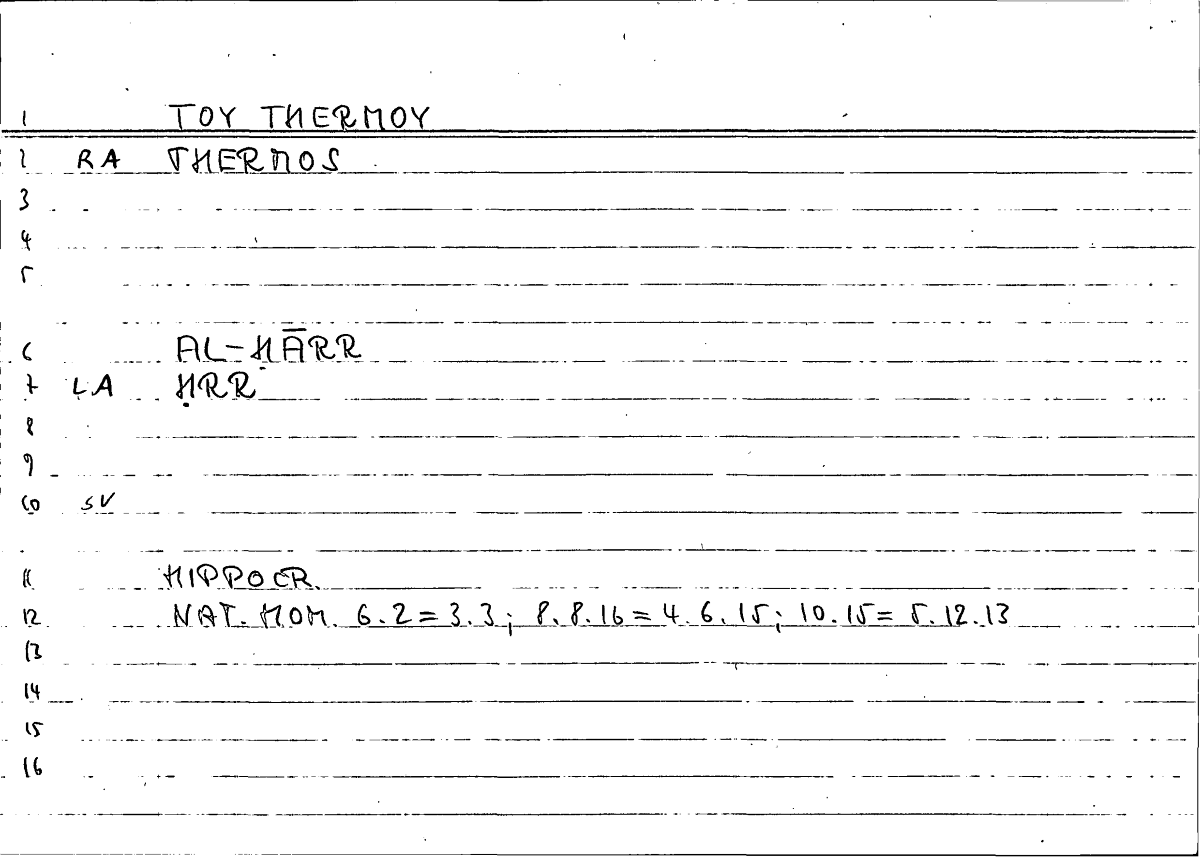 1 TOY THERMOY
2 RA THERMOS
3
4
5
6 AL-ḤĀRR
7 LA ḤRR
8
9
10 SV
11 HIPPOCR.
12 NAT. HOM. 6.2 = 3.3; 8.8.16 = 4.6.15; 10.15 = 5.12.13
13
14
15
16